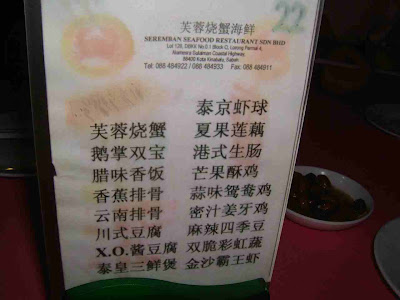 22
芙蓉烧蟹海鲜
SEREMBAN SEAFOOD RESTAURANT SDN BHD
Lot 139, DBKK No.5.1 Block O, Lorong Permai 4,
Sulaman Coastal Highway,
88400 Kota Kinabalu, Sabah
Tel: 088 484922 / 088 484933 Fax: 088 484911
泰京虾球
芙蓉烧蟹 夏果莲藕
鹅掌双宝 港式生肠
腊味香饭 芒果酥鸡
香蕉排骨 蒜味鸳鸯鸡
云南排骨 密汁姜牙鸡
川式豆腐 麻辣四季豆
X.O.酱豆腐 双脆彩虹蔬
泰皇三鲜煲 金沙霸王虾